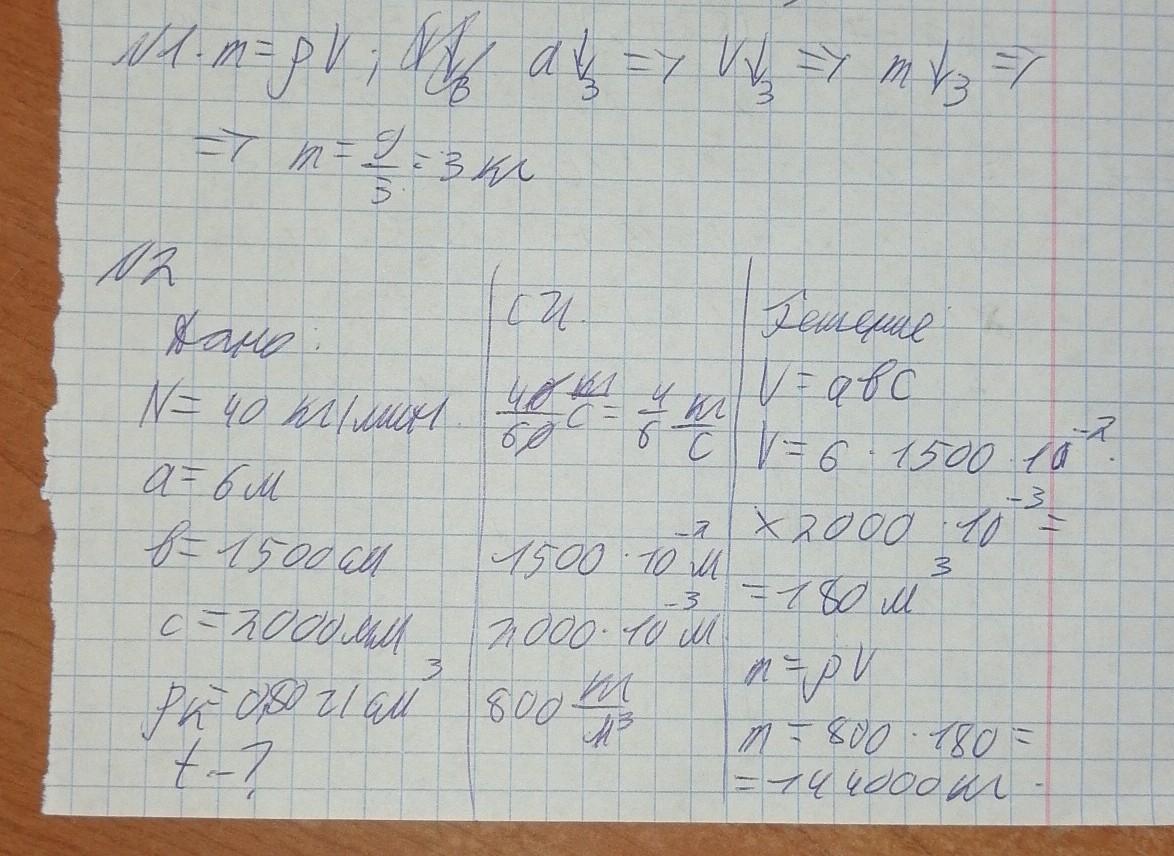 N1. m = ρV; a↓3 => V↓3 => m↓3 =>
=> m = 9/3 = 3 кг
N2
Дано:
N = 40 кг/мин.
a = 6 м
b = 1500 см
c = 2000 мм
ρк = 0,80 г/см³
t - ?
СИ.
40/60 кг/с = 4/6 кг/с
1500 · 10⁻² м
2000 · 10⁻³ м
800 кг/м³
Решение
V = abc
V = 6 · 1500 · 10⁻² ·
× 2000 · 10⁻³ =
= 180 м³
m = ρV
m = 800 · 180 =
= 144000 кг